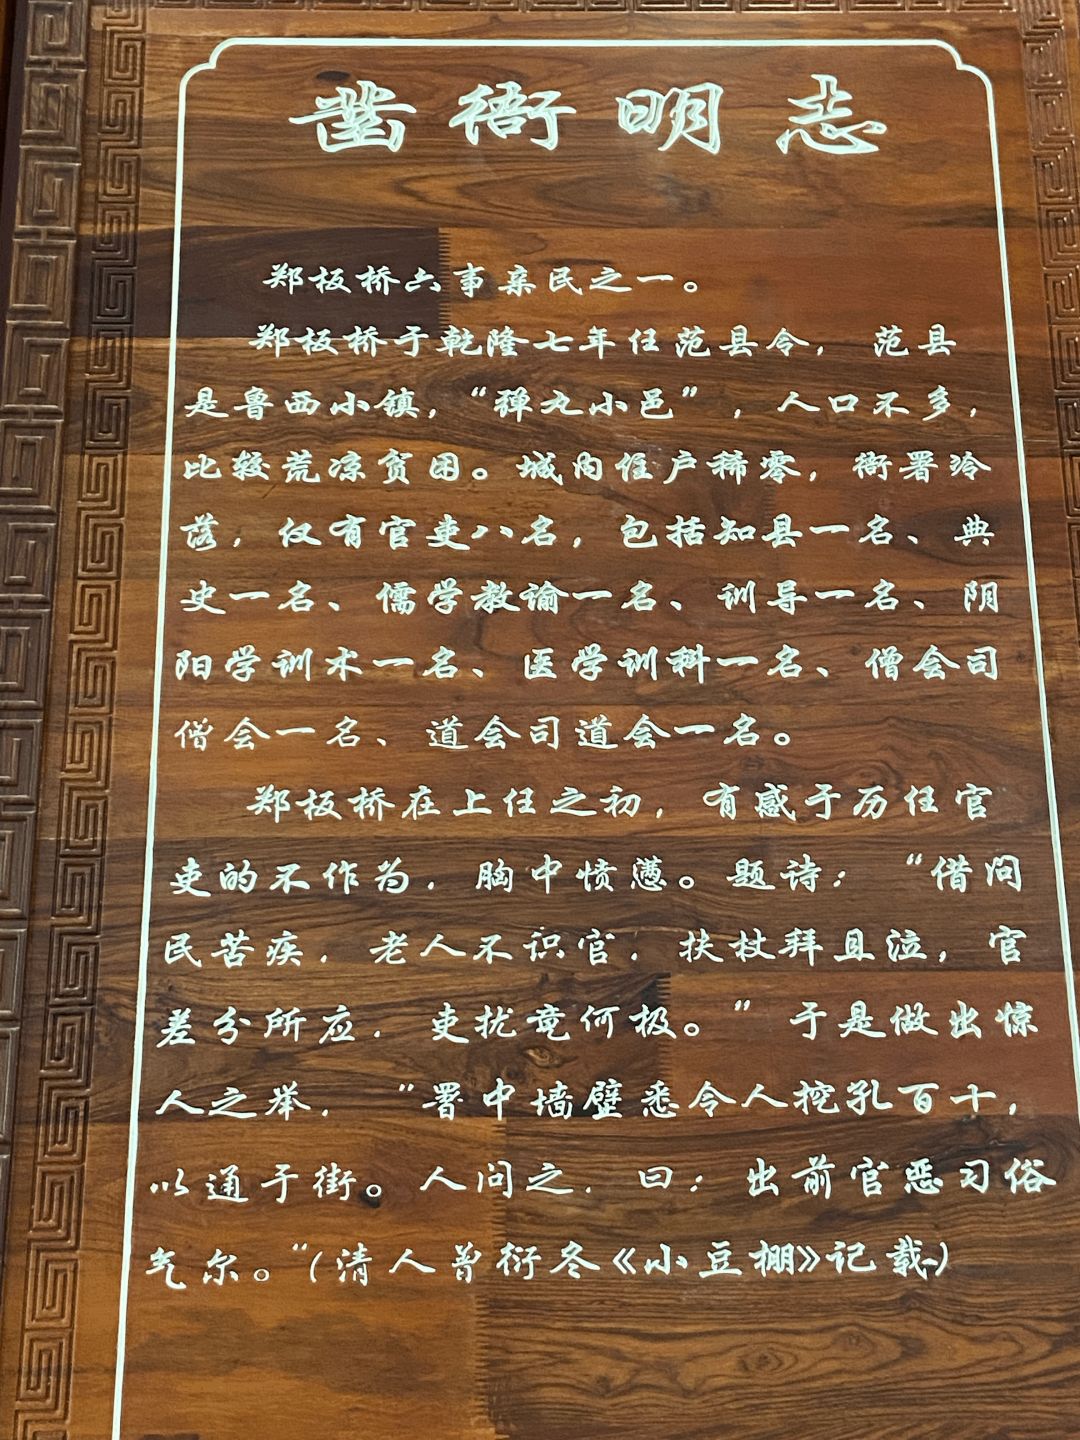 凿衙明志
郑板桥六事亲民之一。
郑板桥于乾隆七年任范县令，范县
是鲁西小镇，“弹丸小邑”，人口不多，
比较荒凉贫困。城内住户稀零，衙署冷
落，仅有官吏八名，包括知县一名、典
史一名、儒学教谕一名、训导一名、阴
阳学训术一名、医学训科一名、僧会司
僧会一名、道会司道会一名。
郑板桥在上任之初，有感于历任官
吏的不作为，胸中愤懑。题诗：“借问
民苦疾，老人不识官，扶杖拜且泣，官
差分所应，吏扰竟何极。”于是做出惊
人之举，“署中墙壁悉令人挖孔百十，
以通于街。人问之，曰：出前官恶习俗
气尔。“(清人曾衍冬《小豆棚》记载)